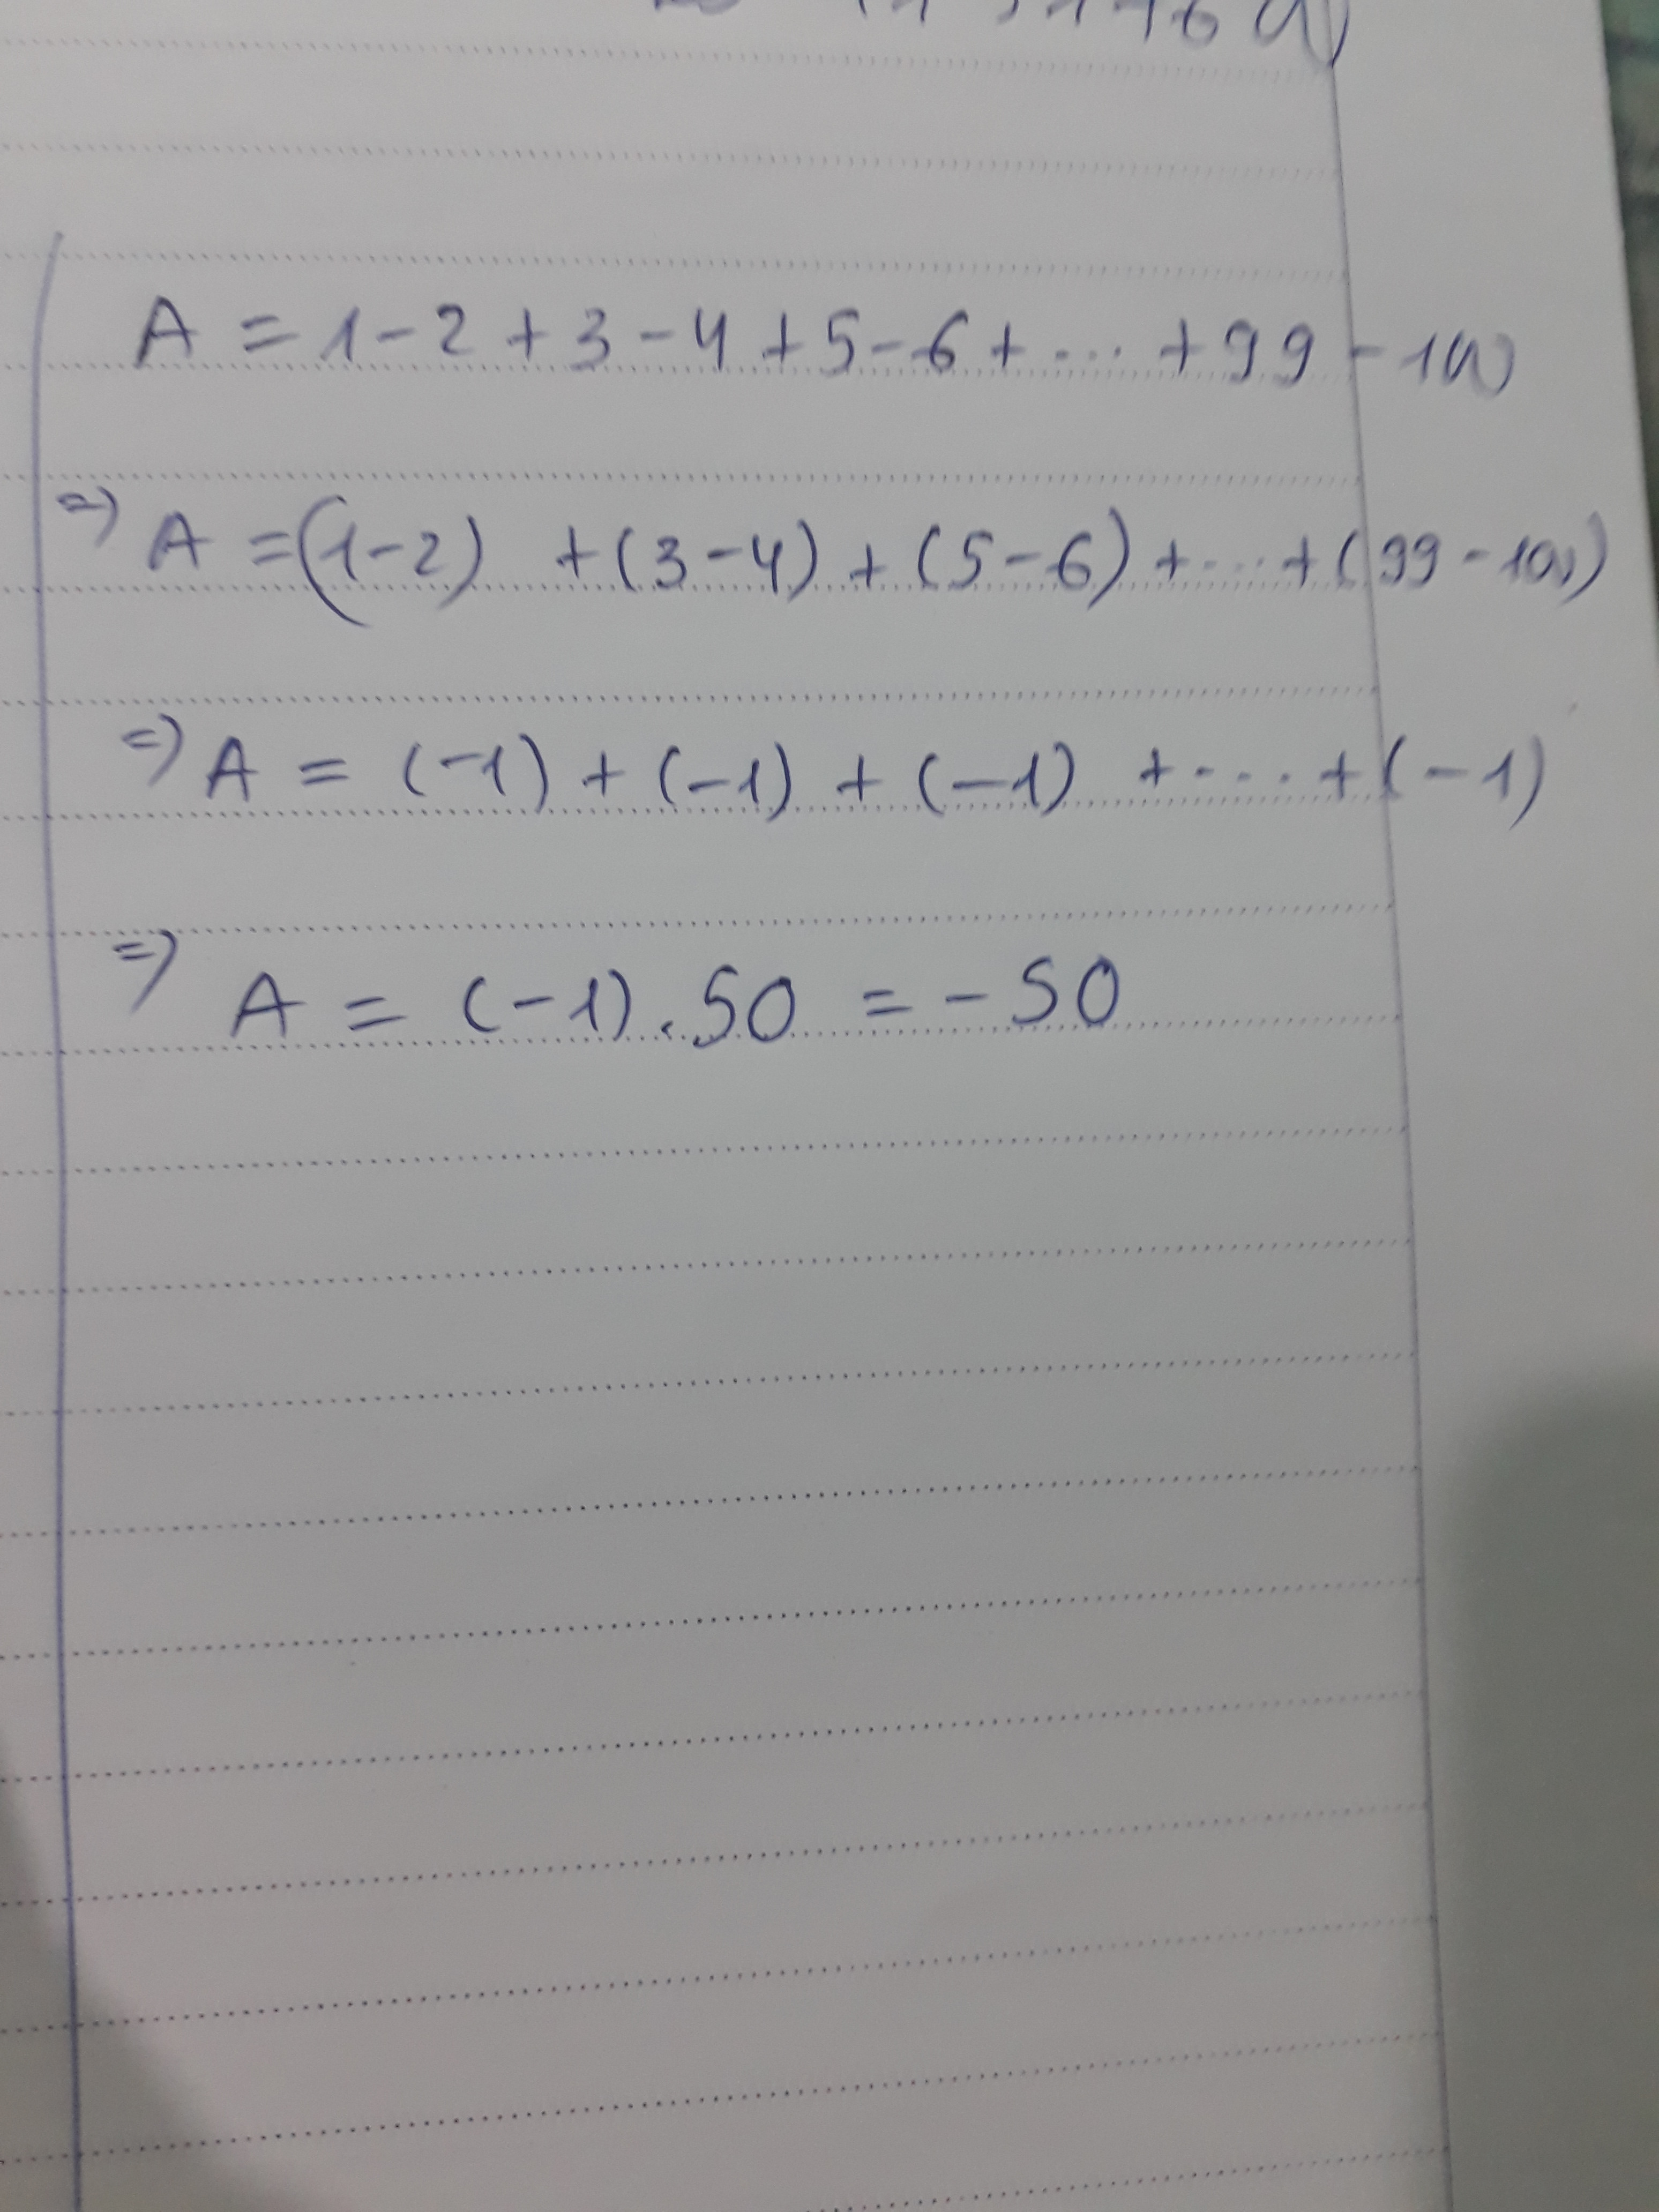 A = 1 - 2 + 3 - 4 + 5 - 6 + ... + 99 - 100
=) A = (1 - 2) + (3 - 4) + (5 - 6) + ... + (99 - 100)
=) A = (-1) + (-1) + (-1) + ... + (-1)
=) A = (-1) . 50 = - 50